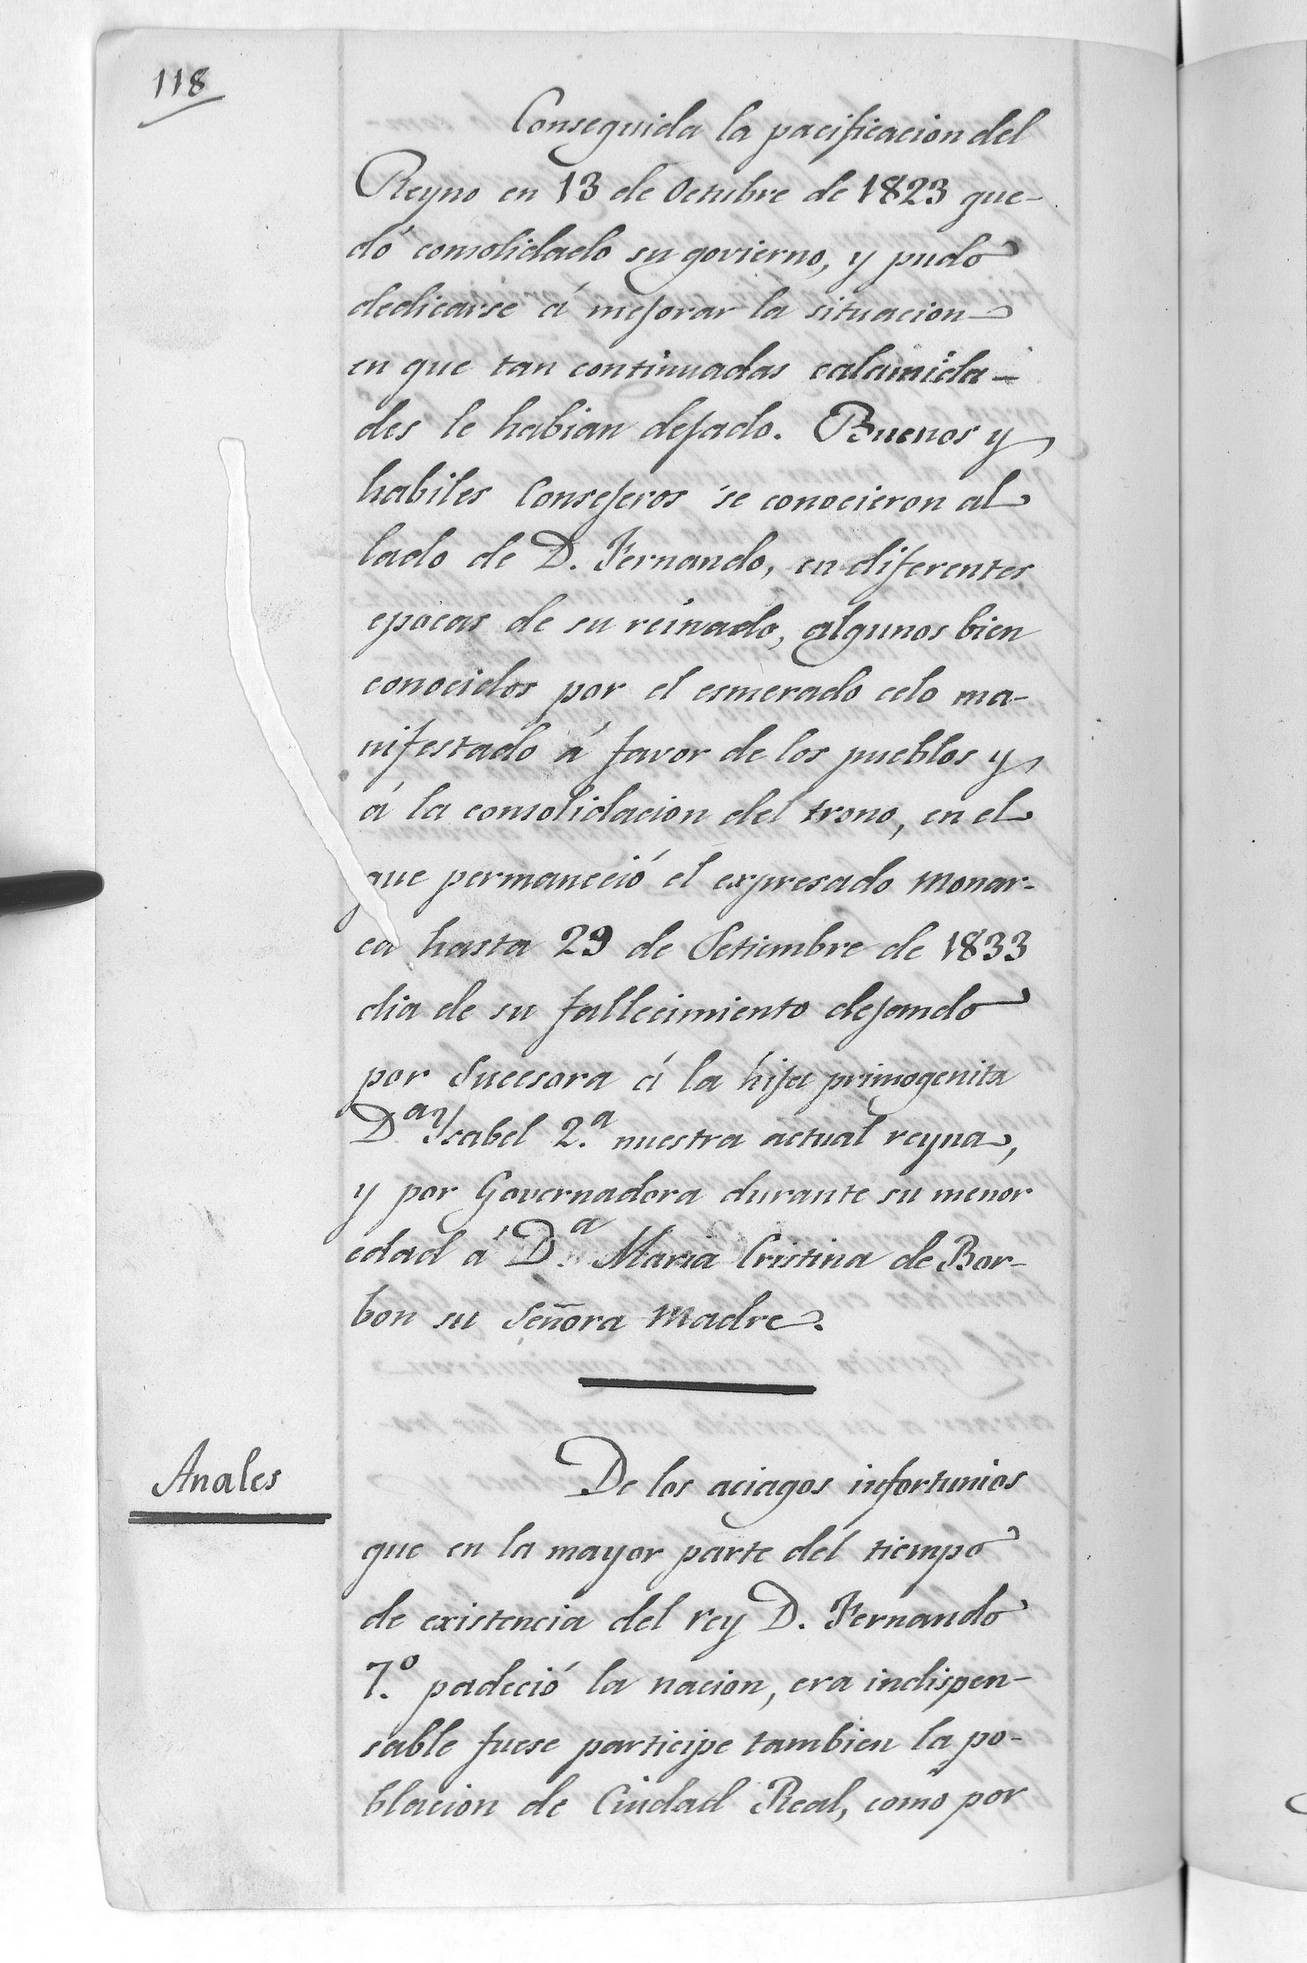 118
Conseguida la pacificacion del
Reyno en 13 de Octubre de 1823 que-
dó consolidado su govierno, y pudo
dedicarse á mejorar la situacion
en que tan continuadas calamida-
des le habian dejado. Buenos y
habiles Consejeros se conocieron al
lado de D. Fernando, en diferentes
epocas de su reinado, algunos bien
conocidos por el esmerado celo ma-
nifestado á favor de los pueblos y
á la consolidacion del trono, en el
que permaneció el expresado monar-
ca hasta 29 de Setiembre de 1833
dia de su fallecimiento dejando
por Sucesora á la hija primogenita
D.ª Ysabel 2.ª nuestra actual reyna,
y por Governadora durante su menor
edad á D.ª Maria Cristina de Bor-
bon su Señora Madre.
Anales
De los aciagos infortunios
que en la mayor parte del tiempo
de existencia del rey D. Fernando
7.º padeció la nacion, era indispen-
sable fuese participe tambien la po-
blacion de Ciudad Real, como por